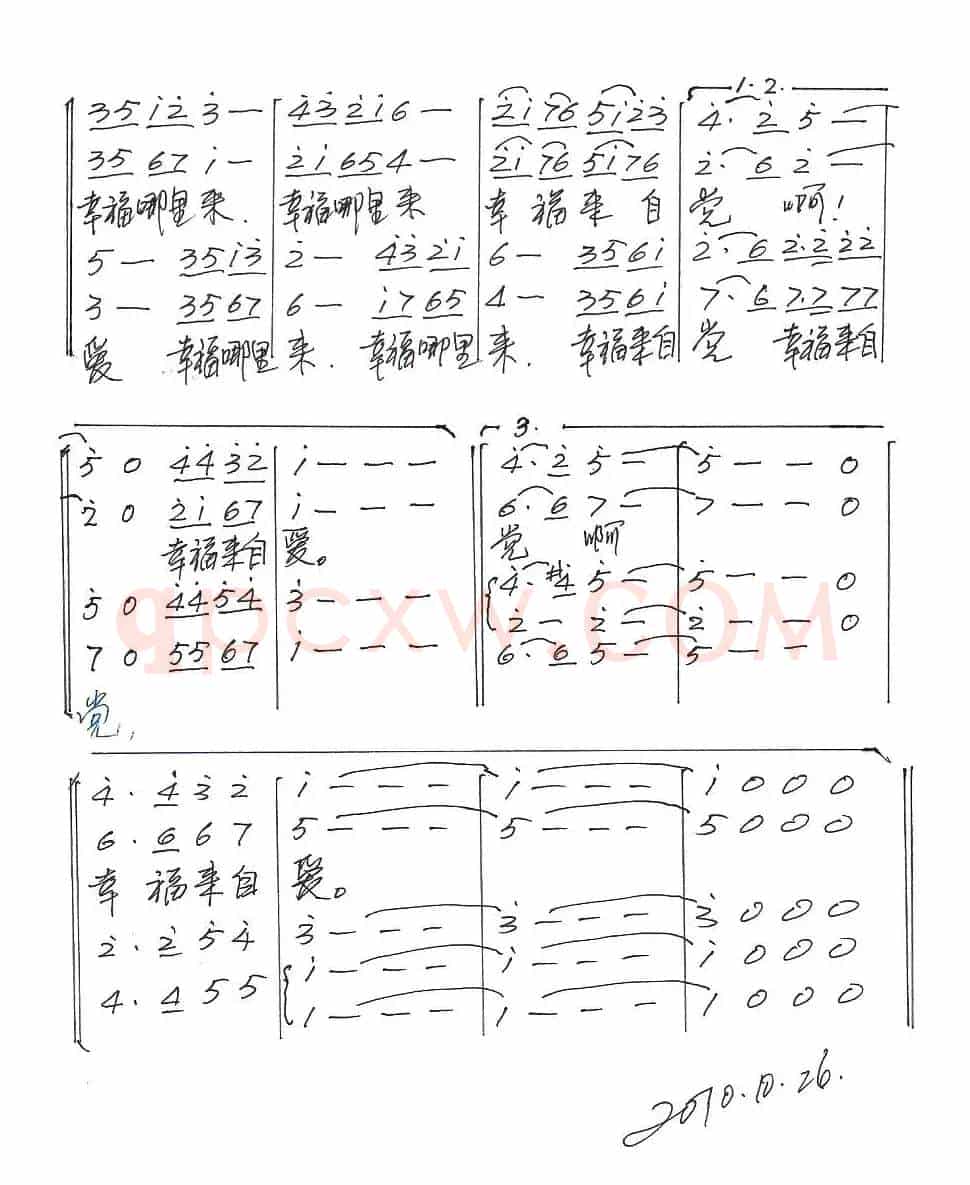 1. 2.
3 5 1̇ 2̇ 3̇ — | 4̇ 3̇ 2̇ 1̇ 6 — | 2̇ 1̇ 7 6 5 1̇ 2̇ 3̇ | 4̇ · 2̇ 5̇ —
3 5 6 7 1̇ — | 2̇ 1̇ 6 5 4 — | 2̇ 1̇ 7 6 5 1̇ 7 6 | 2̇ · 6 2̇ —
幸福哪里来. 幸福哪里来 幸 福 来 自 党 啊!
5 — 3 5 1̇ 3̇ | 2̇ — 4̇ 3̇ 2̇ 1̇ | 6 — 3 5 6 1̇ | 2̇ · 6 2̇ · 2̇ 2̇ 2̇
3 — 3 5 6 7 | 6 — 1̇ 7 6 5 | 4 — 3 5 6 1̇ | 7 · 6 7 · 7 7 7
爱 幸福哪里 来. 幸福哪里 来. 幸福来自 党 幸福来自
3.
5̇ 0 4̇ 4̇ 3̇ 2̇ | 1̇ — — — ‖ 4̇ · 2̇ 5̇ — | 5̇ — — 0
2̇ 0 2̇ 1̇ 6 7 | 1̇ — — — ‖ 6 · 6 7 — | 7 — — 0
幸福来自 爱。 党 啊
5̇ 0 4̇ 4̇ 5̇ 4̇ | 3̇ — — — ‖ 4̇ · #4̇ 5̇ — | 5̇ — — 0
2̇ — 2̇ — | 2̇ — — 0
7 0 5 5 6 7 | 1̇ — — — ‖ 6 · 6 5 — | 5 — —
党,
qpcxw.COM
4̇ · 4̇ 3̇ 2̇ | 1̇ — — — | 1̇ — — — | 1̇ 0 0 0
6 · 6 6 7 | 5 — — — | 5 — — — | 5 0 0 0
幸 福来自 爱。
2̇ · 2̇ 5̇ 4̇ | 3̇ — — — | 3̇ — — — | 3̇ 0 0 0
1̇ — — — | 1̇ — — — | 1̇ 0 0 0
4 · 4 5 5 | 1 — — — | 1 — — — | 1 0 0 0
2010.10.26.